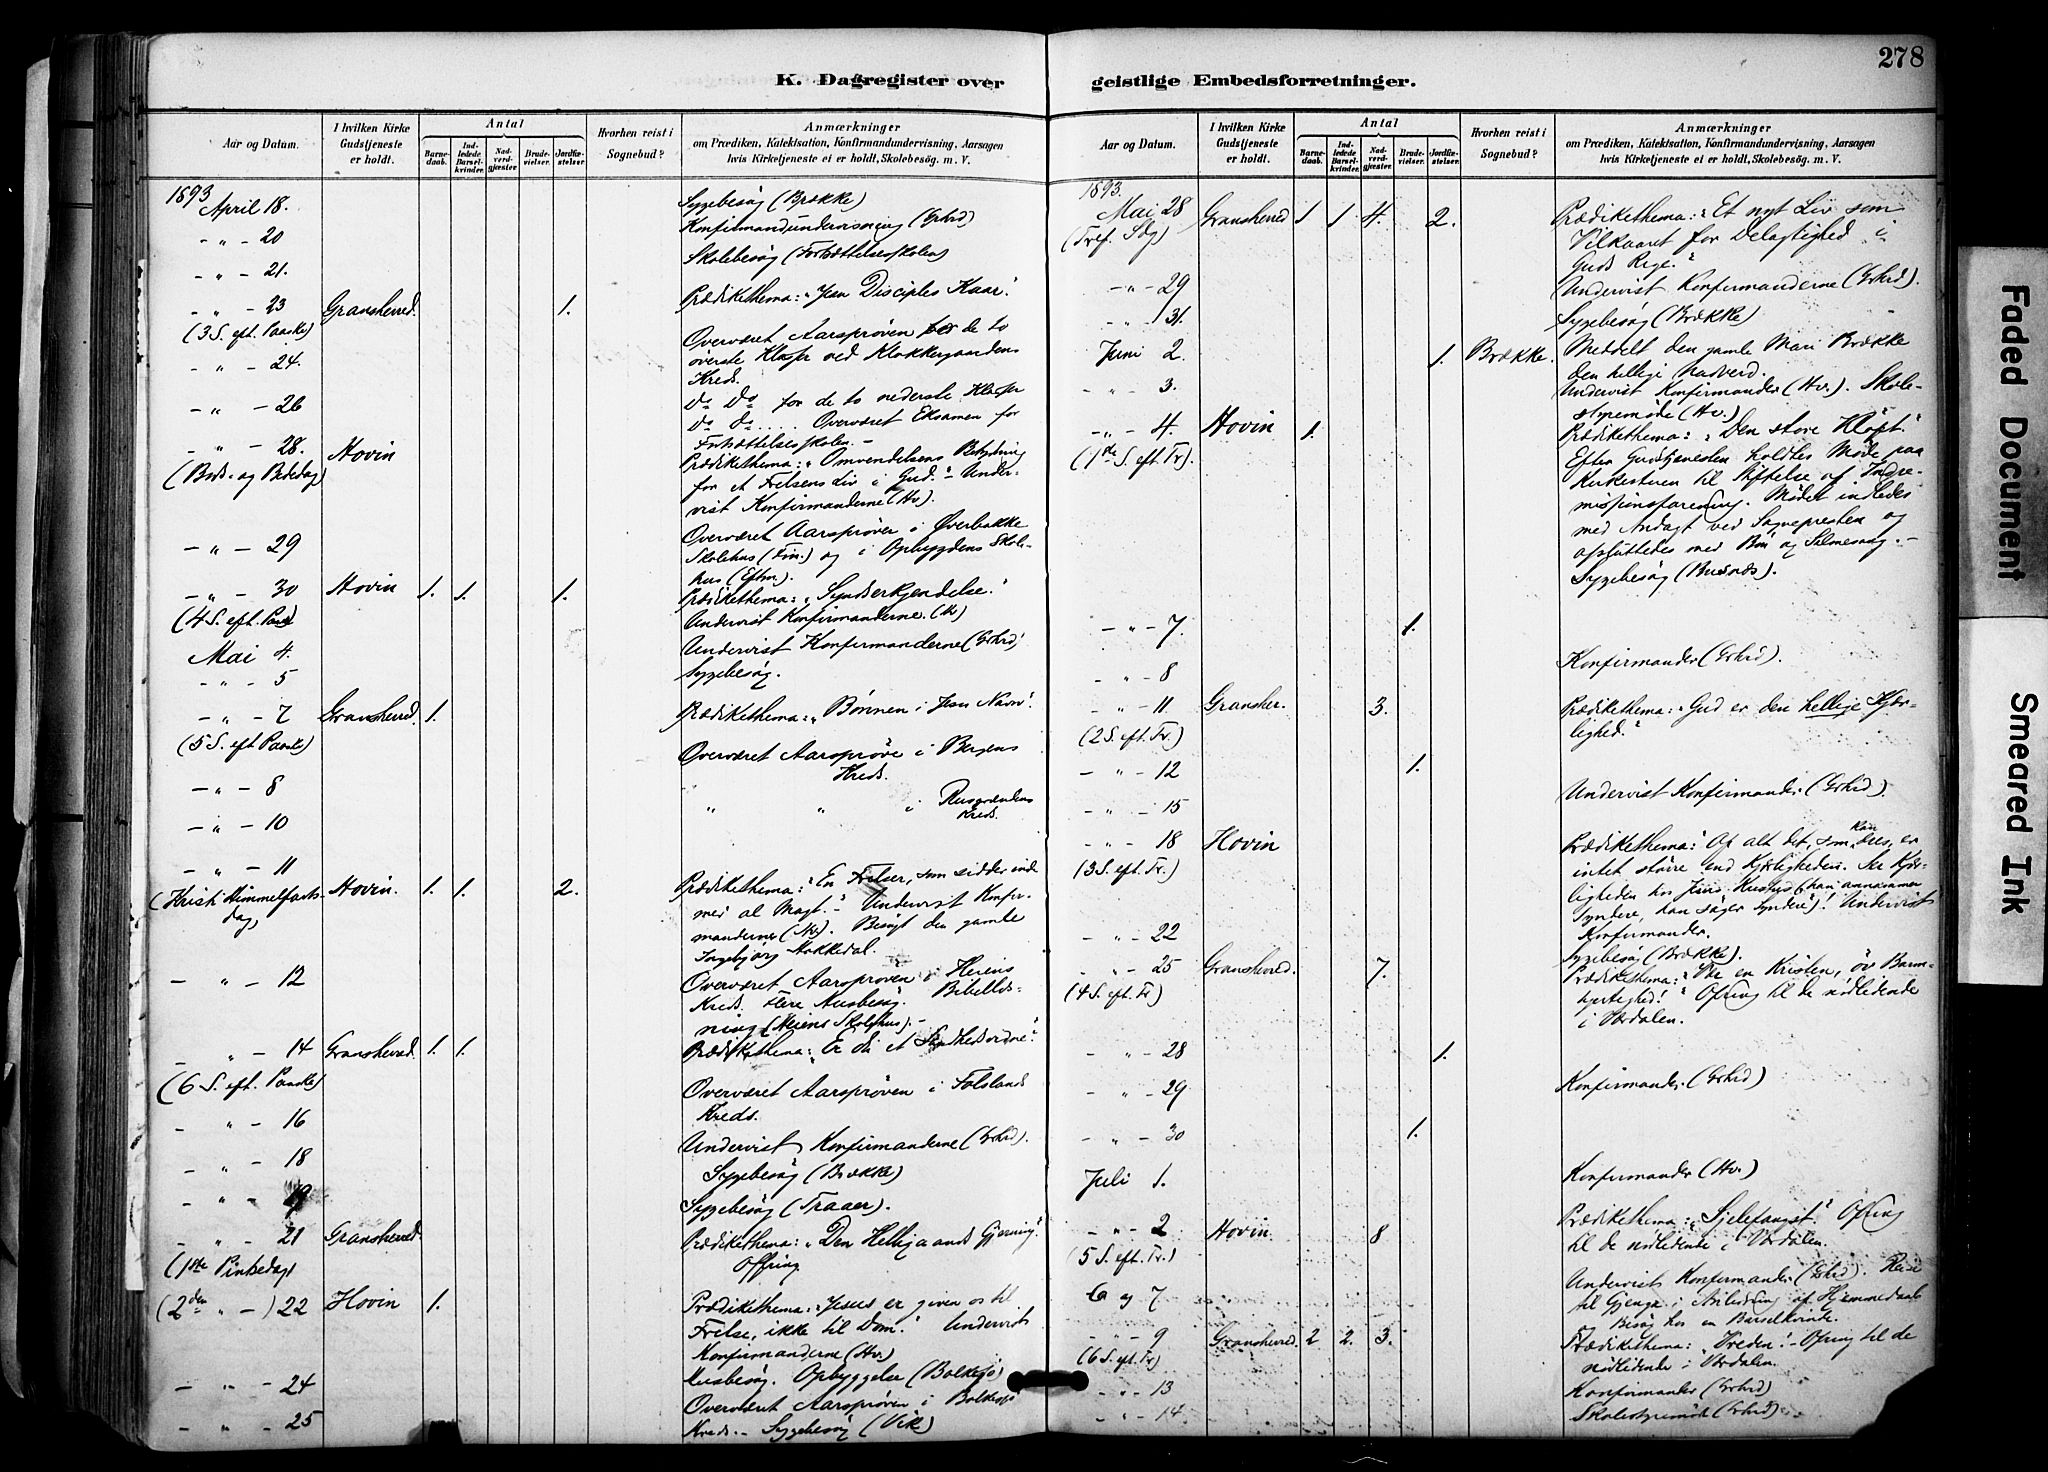 278
K. Dagregister over
geistlige Embedsforretninger.
Aar og Datum.
I hvilken Kirke Gudstjeneste er holdt.
Antal
Barnedaab.
Indledede Barselkvinder.
Nadverdgjester.
Brudevielser.
Jordfæstelser.
Hvorhen reist i Sognebud?
Anmærkninger
om Prædiken, Katekisation, Konfirmandundervisning, Aarsagen
hvis Kirketjeneste ei er holdt, Skolebesøg. m. V.
1893
April 18. Sygebesøg (Brække)
- " - 20 Konfirmandundervisning (Grhrd)
- " - 21. Skolebesøg (Fortsættelsesskolen)
- " - 23 Gransherred. 1. Prædikethema: "Jesu Disciples Kaar".
(3 S. eft. Paaske)
- " - 24. Overværet Aarsprøven for de to
øverste Klasser ved Klokkergaardens
Kreds.
- " - 26 Do Do for de to nederste Klasser
- " - 28. Hovin Do do .... Overværet Eksamen for
Fortsættelsesskolen. -
(Bods- og Bededag) Prædikethema: "Omvendelsens Betydning
for et Frelsens Liv i Gud." - Under-
vist Konfirmanderne (Hv).
- " - 29 Overværet Aarsprøver i Øverbakke
Skolehus (Fm.) og i Opbygdens Skole-
hus (Eftm).
- " - 30 Hovin 1. 1. 1. Prædikethema: "Syndserkjendelse."
(4 S. eft. Paask) Undervist Konfirmanderne. (Hv)
Mai 4. Undervist Konfirmanderne (Grhrd)
- " - 5 Sygebesøg.
- " - 7 Gransherred 1. Prædikethema: "Bønnen i Jesu Navn".
(5 S. eft Paaske)
- " - 8 Overværet Aarsprøve i Bergens
Kreds.
- " - 10 " " i Rusgrændens
Kreds.
- " - 11 Hovin. 1. 1. 2. Prædikethema: "En Frelser, som sidder inde
(Kristi Himmelfarts-
dag) med al Magt." - Undervist Konfir-
manderne (Hv). Besøgt den gamle
Ingebjørg Mokkedal.
- " - 12 Overværet Aarsprøven i Heiens
Kreds. Flere Husbesøg. Bibellæs-
ning (Heiens Skolehus). -
- " - 14 Gransherred 1. 1. Prædikethema: "Er du et Sandhedsvidne?"
(6 S. eft. Paaske)
- " - 16 Overværet Aarsprøven i Folslands
Kreds.
- " - 18 Undervist Konfirmanderne (Grhrd).
Sygebesøg (Brække)
- " - 19 Sygebesøg (Traaer).
- " - 21 Gransherred Prædikethema: "Den Helligaands Gjerning".
(1ste Pintsedag) Offring
(2den - " -) 22 Hovin 1. Prædikethema: "Jesus er given os til
Frelse, ikke til Dom." Undervist
Konfirmanderne (Hv.)
- " - 24 Husbesøg. Opbyggelse (Bolkesø)
- " - 25 Overværet Aarsprøven i Bolkesø
Kreds. - Sygebesøg (Vik)
Aar og Datum.
I hvilken Kirke Gudstjeneste er holdt.
Antal
Barnedaab.
Indledede Barselkvinder.
Nadverdgjester.
Brudevielser.
Jordfæstelser.
Hvorhen reist i Sognebud?
Anmærkninger
om Prædiken, Katekisation, Konfirmandundervisning, Aarsagen
hvis Kirketjeneste ei er holdt, Skolebesøg. m. V.
1893.
Mai 28 Gransherred 1 1 4. 2. Prædikethema: "Et nyt Liv som
(Tref. Sdg) Vilkaaret for Delagtighed i
Guds Rige."
- " - 29 Undervist Konfirmanderne (Grhrd).
- " - 31. Sygebesøg (Brække)
Juni 2. 1. Brække. Meddelt den gamle Mari Brække
den hellige Nadverd.
- " - 3. Undervist Konfirmander (Hv). Skole-
styremøde (Hv.)
- " - 4. Hovin 1. Prædikethema: "Den store Kløft."
(1ste S. eft. Tr). Efter Gudstjenesten holdtes Møde paa
Kirkestuen til Stiftelse af Indre-
missionsforening. Mødet indledes
med Andagt ved Sognepresten og
afsluttedes med Bøn og Salmesang. -
Sygebesøg (Busnæs).
- " - 7. 1.
- " - 8 Konfirmander (Grhrd).
- " - 11 Gransher. 3. Prædikethema: "Gud er den hellige Kjær-
(2 S. eft. Tr.) lighed."
- " - 12 1.
- " - 15 Undervist Konfirmander (Grhrd)
- " - 18 Hovin Prædikethema: "Af alt det, som kan
(3 S. eft. Tr.) intet større end Kjærligheden. Se Kjær-
ligheden hos Jesus (han annammer
Syndere, han søger Syndere)! Undervist
Konfirmander.
- " - 22 Sygebesøg (Brække).
- " - 25 Gransherred. 7. Prædikethema: "Vær en Kristen, øv Barm-
(4 S. eft. Tr) hjertighed!" Ofring til de nødlidende
i Værdalen.
- " - 28 1.
- " - 29 Konfirmander (Grhrd)
- " - 30 1.
Juli 1. Konfirmander (Hv.)
- " - 2 Hovin 8 Prædikethema: "Sjelefangst." Ofring
(5 S. eft. Tr.) til de nødlidende i Værdalen.
6 og 7 Undervist Konfirmander (Grhrd). Reise
til Gjenge i Anledning af Hjemmedaab
Besøg hos en Barselkvinde.
- " - 9 Gransherred 2 2. 3. Prædikethema: "Vreden"! - Ofring til de
(6 S. eft. Tr) nødlidende i Værdalen.
- " - 13 Konfirmander (Grhrd)
- " - 14. Skolestyremøde (Grhrd)
Faded Document
Smeared Ink